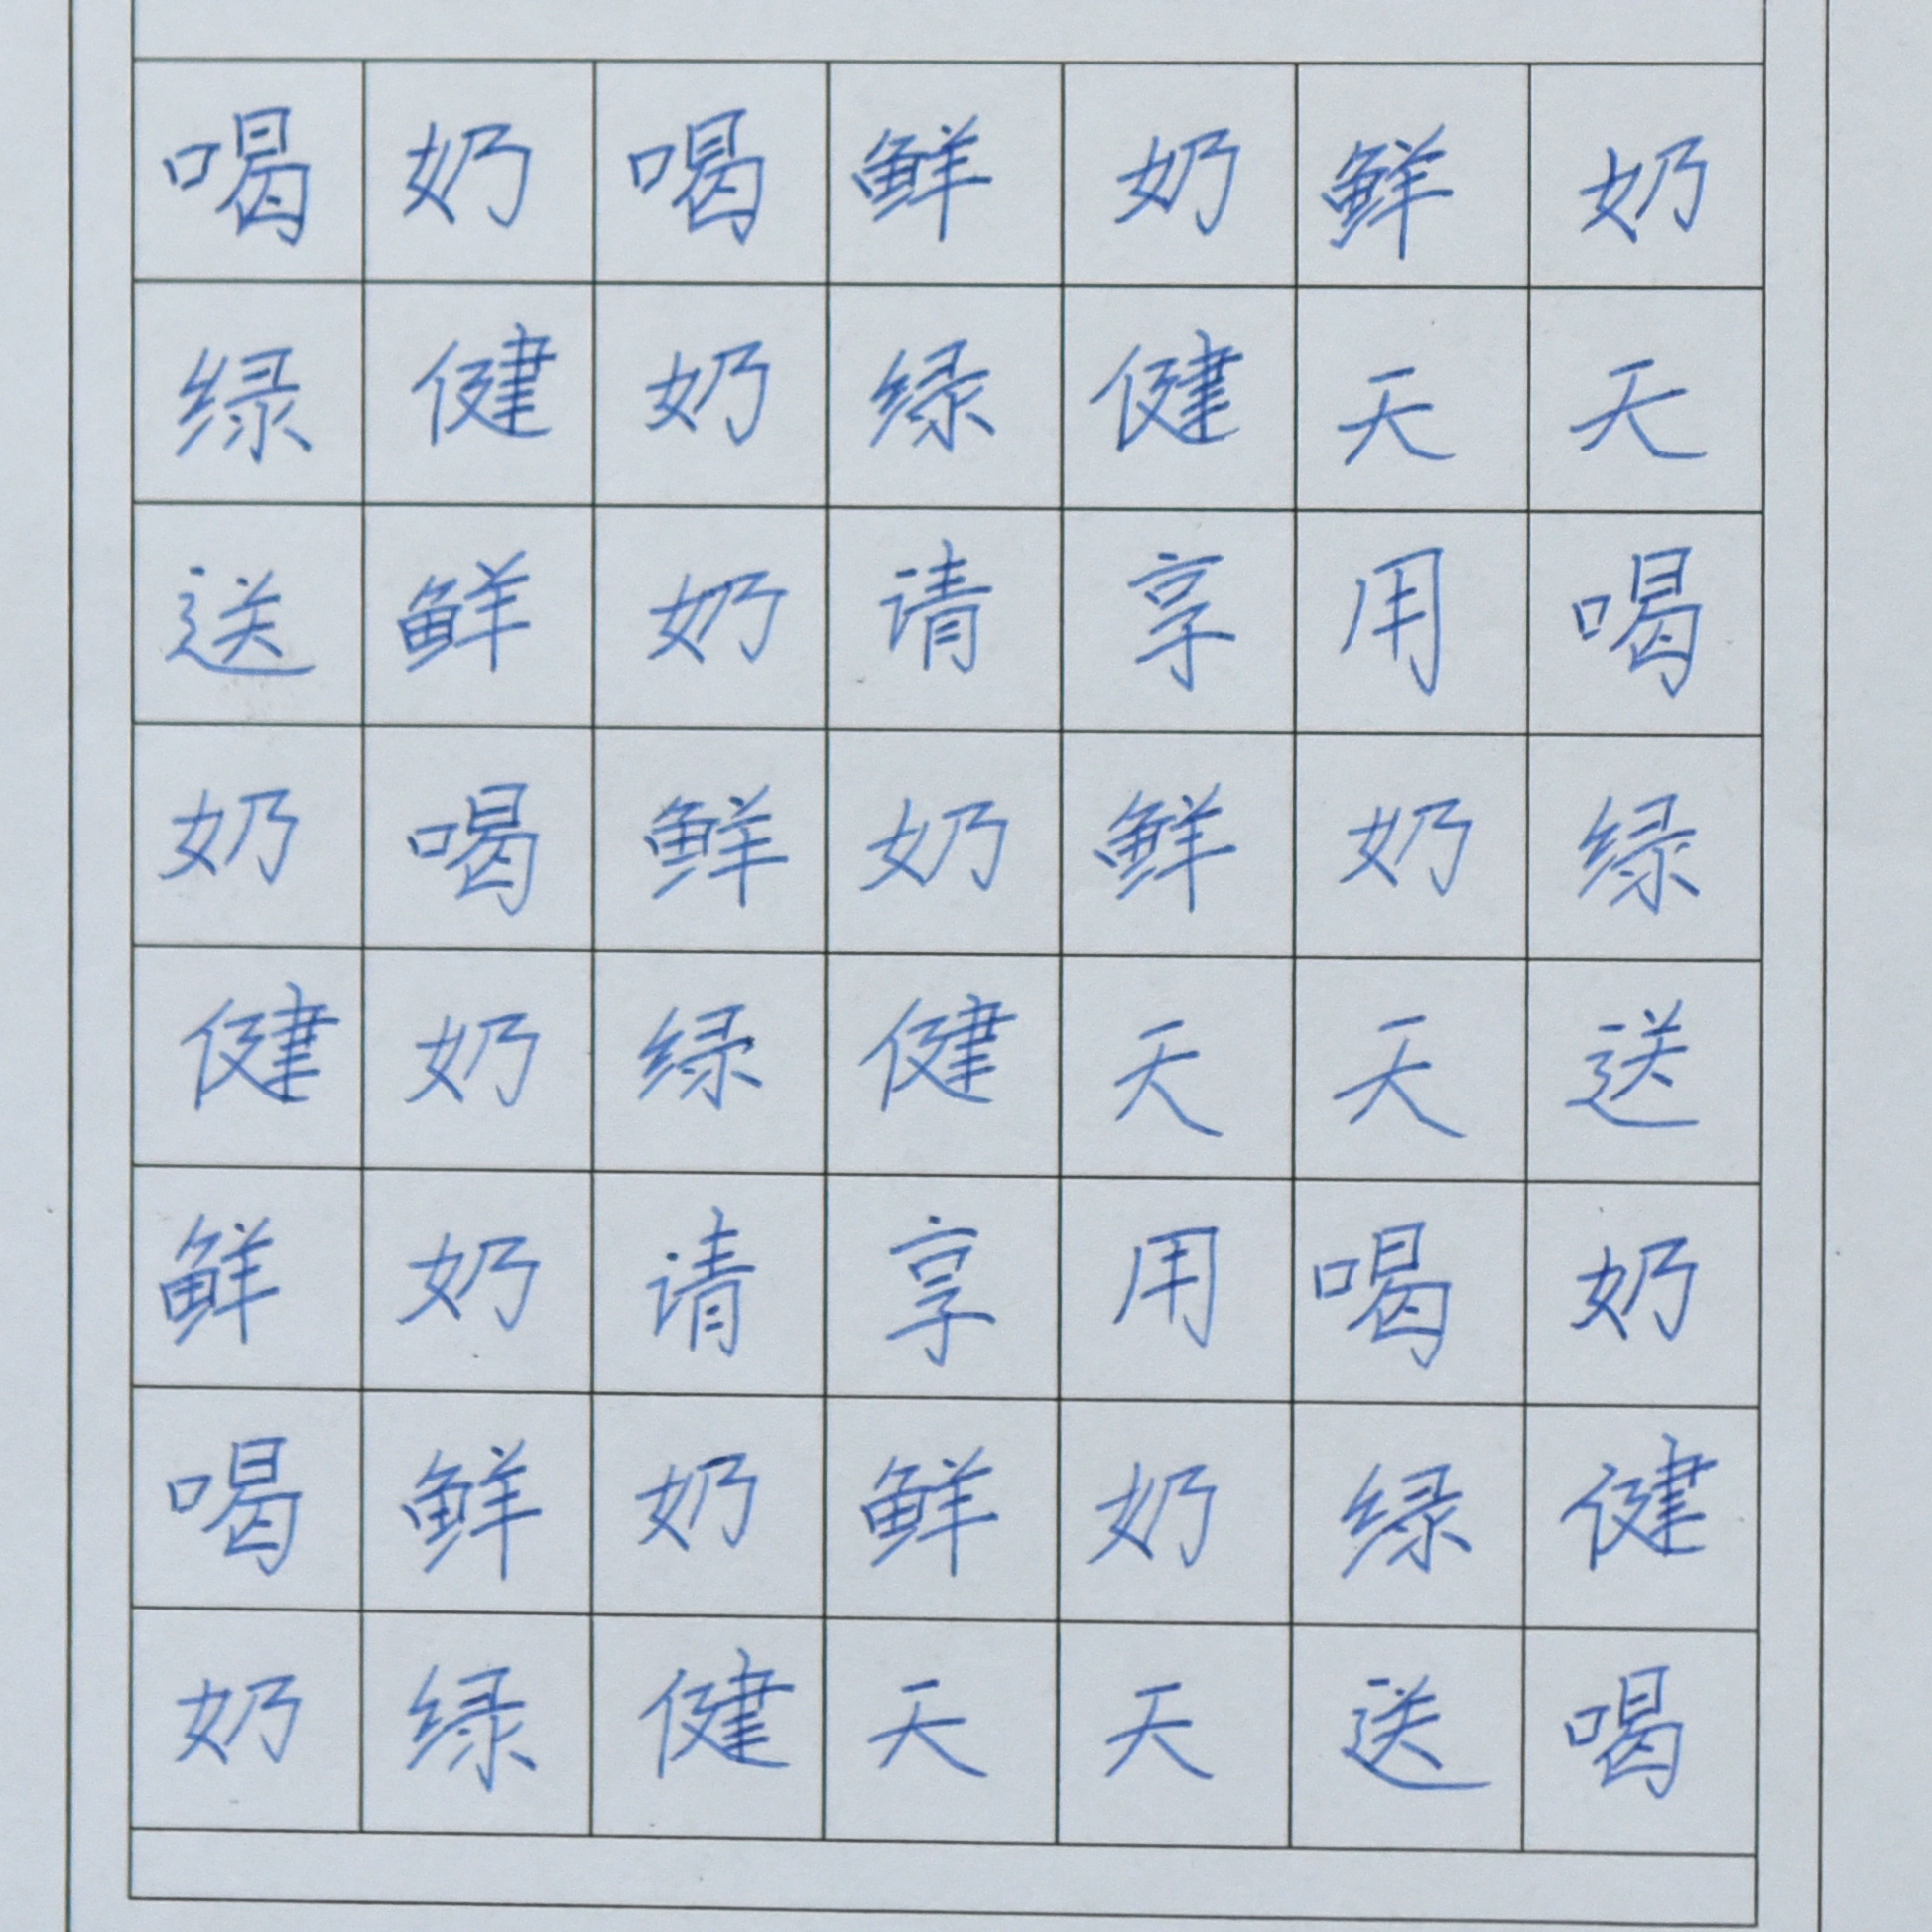 喝奶喝鲜奶鲜奶
绿健奶绿健天天
送鲜奶请享用喝
奶喝鲜奶鲜奶绿
健奶绿健天天送
鲜奶请享用喝奶
喝鲜奶鲜奶绿健
奶绿健天天送喝